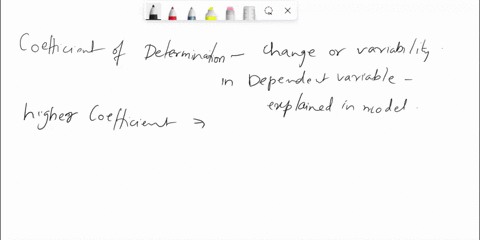 Coefficient of Determination - change or variability
in Dependent variable -
explained in model.
higher Coefficient ⇒